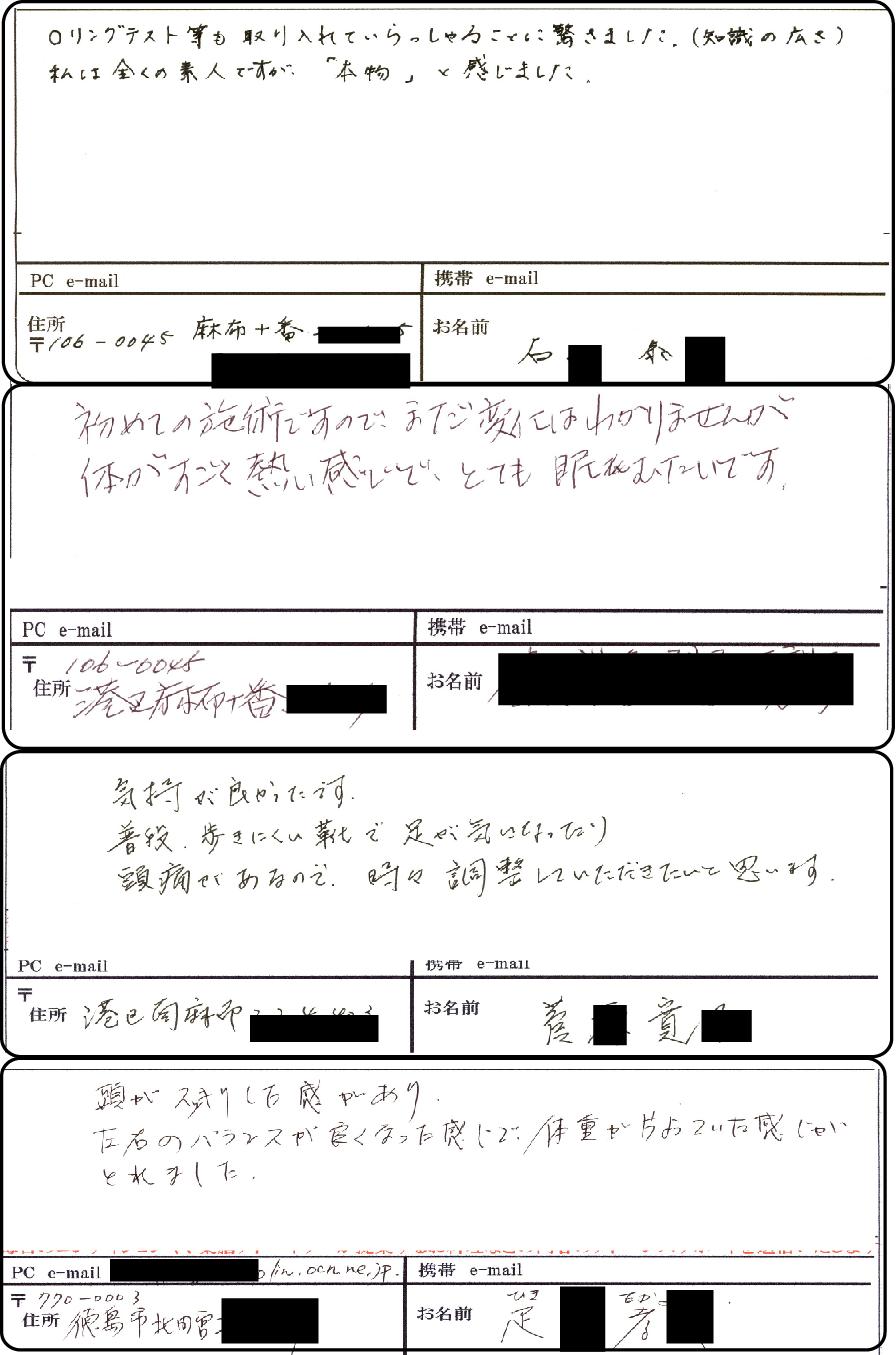 Oリングテスト等も取り入れていらっしゃることに驚きました。(知識の広さ)
私は全くの素人ですが、「本物」と感じました。
PC e-mail
携帯 e-mail
住所
〒106-0045 麻布十番
お名前
石
初めての施術ですので、まだ変化はわかりませんが
体がすごく熱い感じで、とても眠れむたいです。
PC e-mail
携帯 e-mail
〒 106-0045
住所 港区麻布十番
お名前
気持が良かったです。
普段、歩きにくい靴で足が気になったり
頭痛があるので、時々調整していただきたいと思います。
PC e-mail
携帯 e-mail
〒
住所 港区南麻布
お名前
貴
頭がスッキリした感があり、
左右のバランスが良くなった感じで、体重が片よっていた感じが
とれました。
PC e-mail
.ocn.ne.jp.
携帯 e-mail
〒 770-0003
住所 徳島市北田宮
お名前
ひき
足 孝